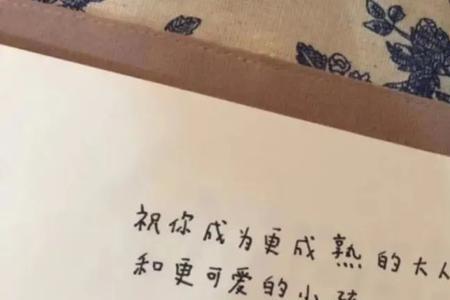 祝你成为更成熟的大人
和更可爱的小孩